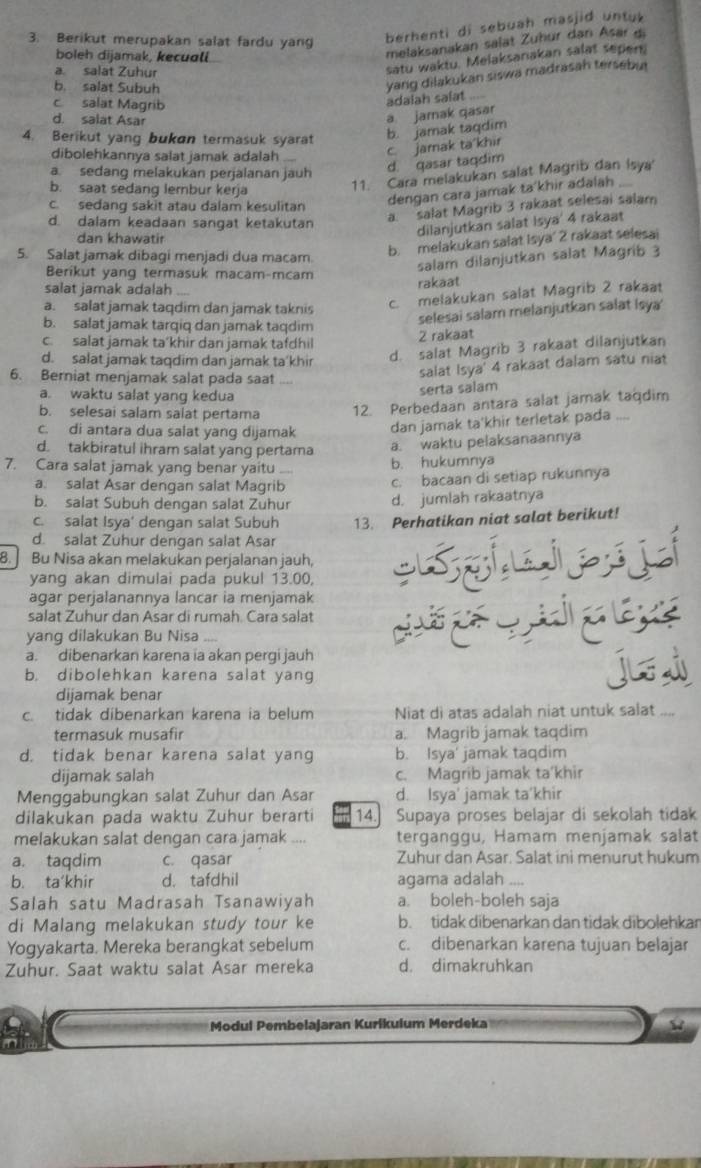 3. Berikut merupakan salat fardu yang
boleh dijamak, kecuali ....
a. salat Zuhur
b. salat Subuh
c. salat Magrib
d. salat Asar
4. Berikut yang bukan termasuk syarat
dibolehkannya salat jamak adalah ....
a. sedang melakukan perjalanan jauh
b. saat sedang lembur kerja
c. sedang sakit atau dalam kesulitan
d. dalam keadaan sangat ketakutan
dan khawatir
5. Salat jamak dibagi menjadi dua macam.
Berikut yang termasuk macam-mcam
salat jamak adalah ....
a. salat jamak taqdim dan jamak taknis
b. salat jamak tarqiq dan jamak taqdim
c. salat jamak ta'khir dan jamak tafdhil
d. salat jamak taqdim dan jamak ta'khir
6. Berniat menjamak salat pada saat ....
a. waktu salat yang kedua
b. selesai salam salat pertama
c. di antara dua salat yang dijamak
d. takbiratul ihram salat yang pertama
7. Cara salat jamak yang benar yaitu ....
a. salat Asar dengan salat Magrib
b. salat Subuh dengan salat Zuhur
c. salat Isya' dengan salat Subuh
d. salat Zuhur dengan salat Asar
8. Bu Nisa akan melakukan perjalanan jauh,
yang akan dimulai pada pukul 13.00,
agar perjalanannya lancar ia menjamak
salat Zuhur dan Asar di rumah. Cara salat
yang dilakukan Bu Nisa ....
a. dibenarkan karena ia akan pergi jauh
b. dibolehkan karena salat yang
dijamak benar
c. tidak dibenarkan karena ia belum
termasuk musafir
d. tidak benar karena salat yang
dijamak salah
Menggabungkan salat Zuhur dan Asar
dilakukan pada waktu Zuhur berarti
melakukan salat dengan cara jamak ....
a. taqdim c. qasar
b. ta'khir d. tafdhil
Salah satu Madrasah Tsanawiyah
di Malang melakukan study tour ke
Yogyakarta. Mereka berangkat sebelum
Zuhur. Saat waktu salat Asar mereka
berhenti di sebuah masjid untuk
melaksanakan salat Zuhur dan Asar di
satu waktu. Melaksanakan salat seperti
yang dilakukan siswa madrasah tersebut
adalah salat ....
a. jamak qasar
b. jamak taqdim
c. jamak ta'khir
d. qasar taqdim
11. Cara melakukan salat Magrib dan Isya'
dengan cara jamak ta'khir adalah ....
a. salat Magrib 3 rakaat selesai salam
dilanjutkan salat Isya' 4 rakaat
b. melakukan salat Isya' 2 rakaat selesai
salam dilanjutkan salat Magrib 3
rakaat
c. melakukan salat Magrib 2 rakaat
selesai salam melanjutkan salat Isya'
2 rakaat
d. salat Magrib 3 rakaat dilanjutkan
salat Isya' 4 rakaat dalam satu niat
serta salam
12. Perbedaan antara salat jamak taqdim
dan jamak ta'khir terletak pada ....
a. waktu pelaksanaannya
b. hukumnya
c. bacaan di setiap rukunnya
d. jumlah rakaatnya
13. Perhatikan niat salat berikut!
أُصَلِّيْ فَرْضَ الْعِشَاءِ أَرْبَعَ رَكَعَاتٍ
مَجْمُوْعًا مَعَ الْمَغْرِبِ جَمْعَ تَقْدِيْمٍ
لِلّٰهِ تَعَالَى
Niat di atas adalah niat untuk salat ....
a. Magrib jamak taqdim
b. Isya' jamak taqdim
c. Magrib jamak ta'khir
d. Isya' jamak ta'khir
Soal HOTS 14. Supaya proses belajar di sekolah tidak
terganggu, Hamam menjamak salat
Zuhur dan Asar. Salat ini menurut hukum
agama adalah ....
a. boleh-boleh saja
b. tidak dibenarkan dan tidak dibolehkan
c. dibenarkan karena tujuan belajar
d. dimakruhkan
Modul Pembelajaran Kurikulum Merdeka